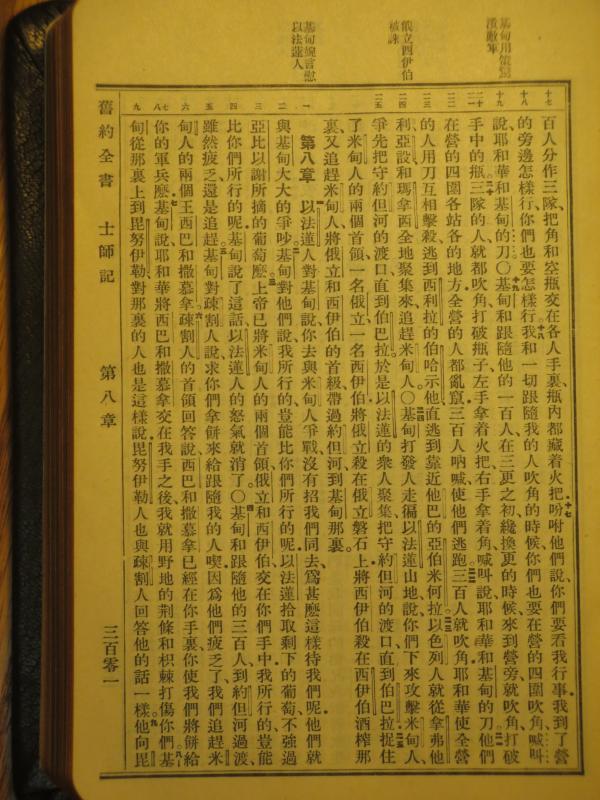 基甸用策寫
潰敵軍
俄立西伊伯
被誅
基甸婉言慰
以法蓮人
十七
百人分作三隊、把角和空瓶交在各人手裏、瓶內都藏着火把、吩咐他們說、你們要看我行事、我到了營
十八
的旁邊怎樣行、你們也要怎樣行、我和一切跟隨我的人吹角的時候、你們也要在營的四圍吹角喊叫
十九
說、耶和華和基甸的刀。〇基甸和跟隨他的一百人、在三更之初、纔換更的時候、來到營旁、就吹角、打破
二十
手中的瓶、三隊的人就都吹角、打破瓶子、左手拿着火把、右手拿着角、喊叫說、耶和華和基甸的刀、他們
二一
二二
在營的四圍各站各的地方、全營的人都亂竄、三百人吶喊、使他們逃跑、三百人就吹角、耶和華使全營
的人用刀互相擊殺、逃到西利拉的伯哈示他、直逃到靠近他巴的亞伯米何拉、以色列人就從拿弗他
二三
利、亞設和瑪拿西全地聚集來追趕米甸人。〇基甸打發人走徧以法蓮山地、說、你們下來攻擊米甸人、
二四
爭先把守約但河的渡口、直到伯巴拉、於是以法蓮的衆人聚集、把守約但河的渡口、直到伯巴拉、捉住
二五
了米甸人的兩個首領、一名俄立、一名西伊伯、將俄立殺在俄立磐石上、將西伊伯殺在西伊伯酒榨那
裏、又追趕米甸人、將俄立和西伊伯的首級、帶過約但河到基甸那裏。
一
第八章 以法蓮人對基甸說、你去與米甸人爭戰、沒有招我們同去、爲甚麽這樣待我們呢、他們就
二
與基甸大大的爭吵、基甸對他們說、我所行的豈能比你們所行的呢、以法蓮拾取剩下的葡萄、不強過
三
亞比以謝所摘的葡萄麽、上帝已將米甸人的兩個首領、俄立和西伊伯交在你們手中、我所行的、豈能
四
比你們所行的呢、基甸說了這話、以法蓮人的怒氣就消了。〇基甸和跟隨他的三百人、到約但河過渡、
五
雖然疲乏、還是追趕、基甸對疎割人說、求你們拿餅來給跟隨我的人喫、因爲他們疲乏了、我們追趕米
六
甸人的兩個王、西巴和撒慕拿、疎割人的首領回答說、西巴和撒慕拿已經在你手裏、你使我們將餅給
七
八
你的軍兵麽、基甸說、耶和華將西巴和撒慕拿交在我手之後、我就用野地的荆條和枳棘打傷你們、基
九
甸從那裏上到毘努伊勒、對那裏的人也是這樣說、毘努伊勒人也與疎割人回答他的話一樣、他向毘
舊約全書 士師記 第八章 三百零一